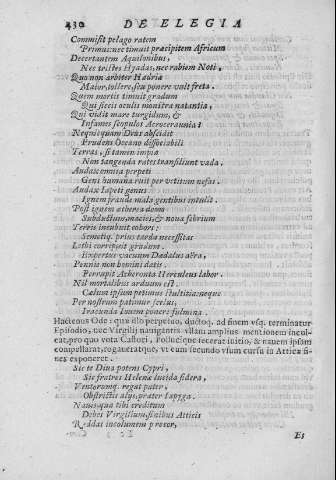 430 DE ELEGIA
Commisit pelago ratem
Primus: nec timuit præcipitem Africum
Decertantem Aquilonibus,
Nec tristes Hyadas, nec rabiem Noti,
Quo non arbiter Hadria
Maior, tollere, seu ponere vult freta.
Quem mortis timuit gradum
Qui siccis oculis monstra natantia,
Qui vidit mare turgidum, &
Infames scopulos Acroceraunia?
Nequicquam Deus abscidit
Prudens Oceano dissociabili
Terras, si tamen impiæ
Non tangenda rates transiliunt vada.
Audax omnia perpeti
Gens humana ruit per vetitum nefas.
Audax Iapeti genus
Ignem fraude mala gentibus intulit.
Post ignem ætherea domo
Subductum, macies, & noua febrium
Terris incubuit cohors:
Semotiq. prius tarda necessitas
Lethi corripuit gradum.
Expertus vacuum Dædalus aëra,
Pennis non homini datis.
Perrupit Acheronta Herculeus labor.
Nil mortalibus arduum est:
Cælum ipsum petimus stultitia: neque
Per nostrum patimur scelus,
Iracunda Iouem ponere fulmina.
Hactenus Ode: quæ illo perpetuo, ductoq. ad finem vsq. terminatur
Episodio, nec Virgilij nauigantis vllam amplius mentionem incul-
cat, pro quo vota Castori, Pollucique fecerat initio, & nauem ipsam
compellarat, rogaueratque, vt eum secundo vsum cursu in Atticæ fi-
nes exponeret.
Sic te Diua potens Cypri,
Sic fratres Helenæ lucida sidera,
Ventorumq. regat pater,
Obstrictis alijs, præter Iapyga.
Nauis, quæ tibi creditum
Debes Virgilium, finibus Atticis
Reddas incolumem precor,
Et